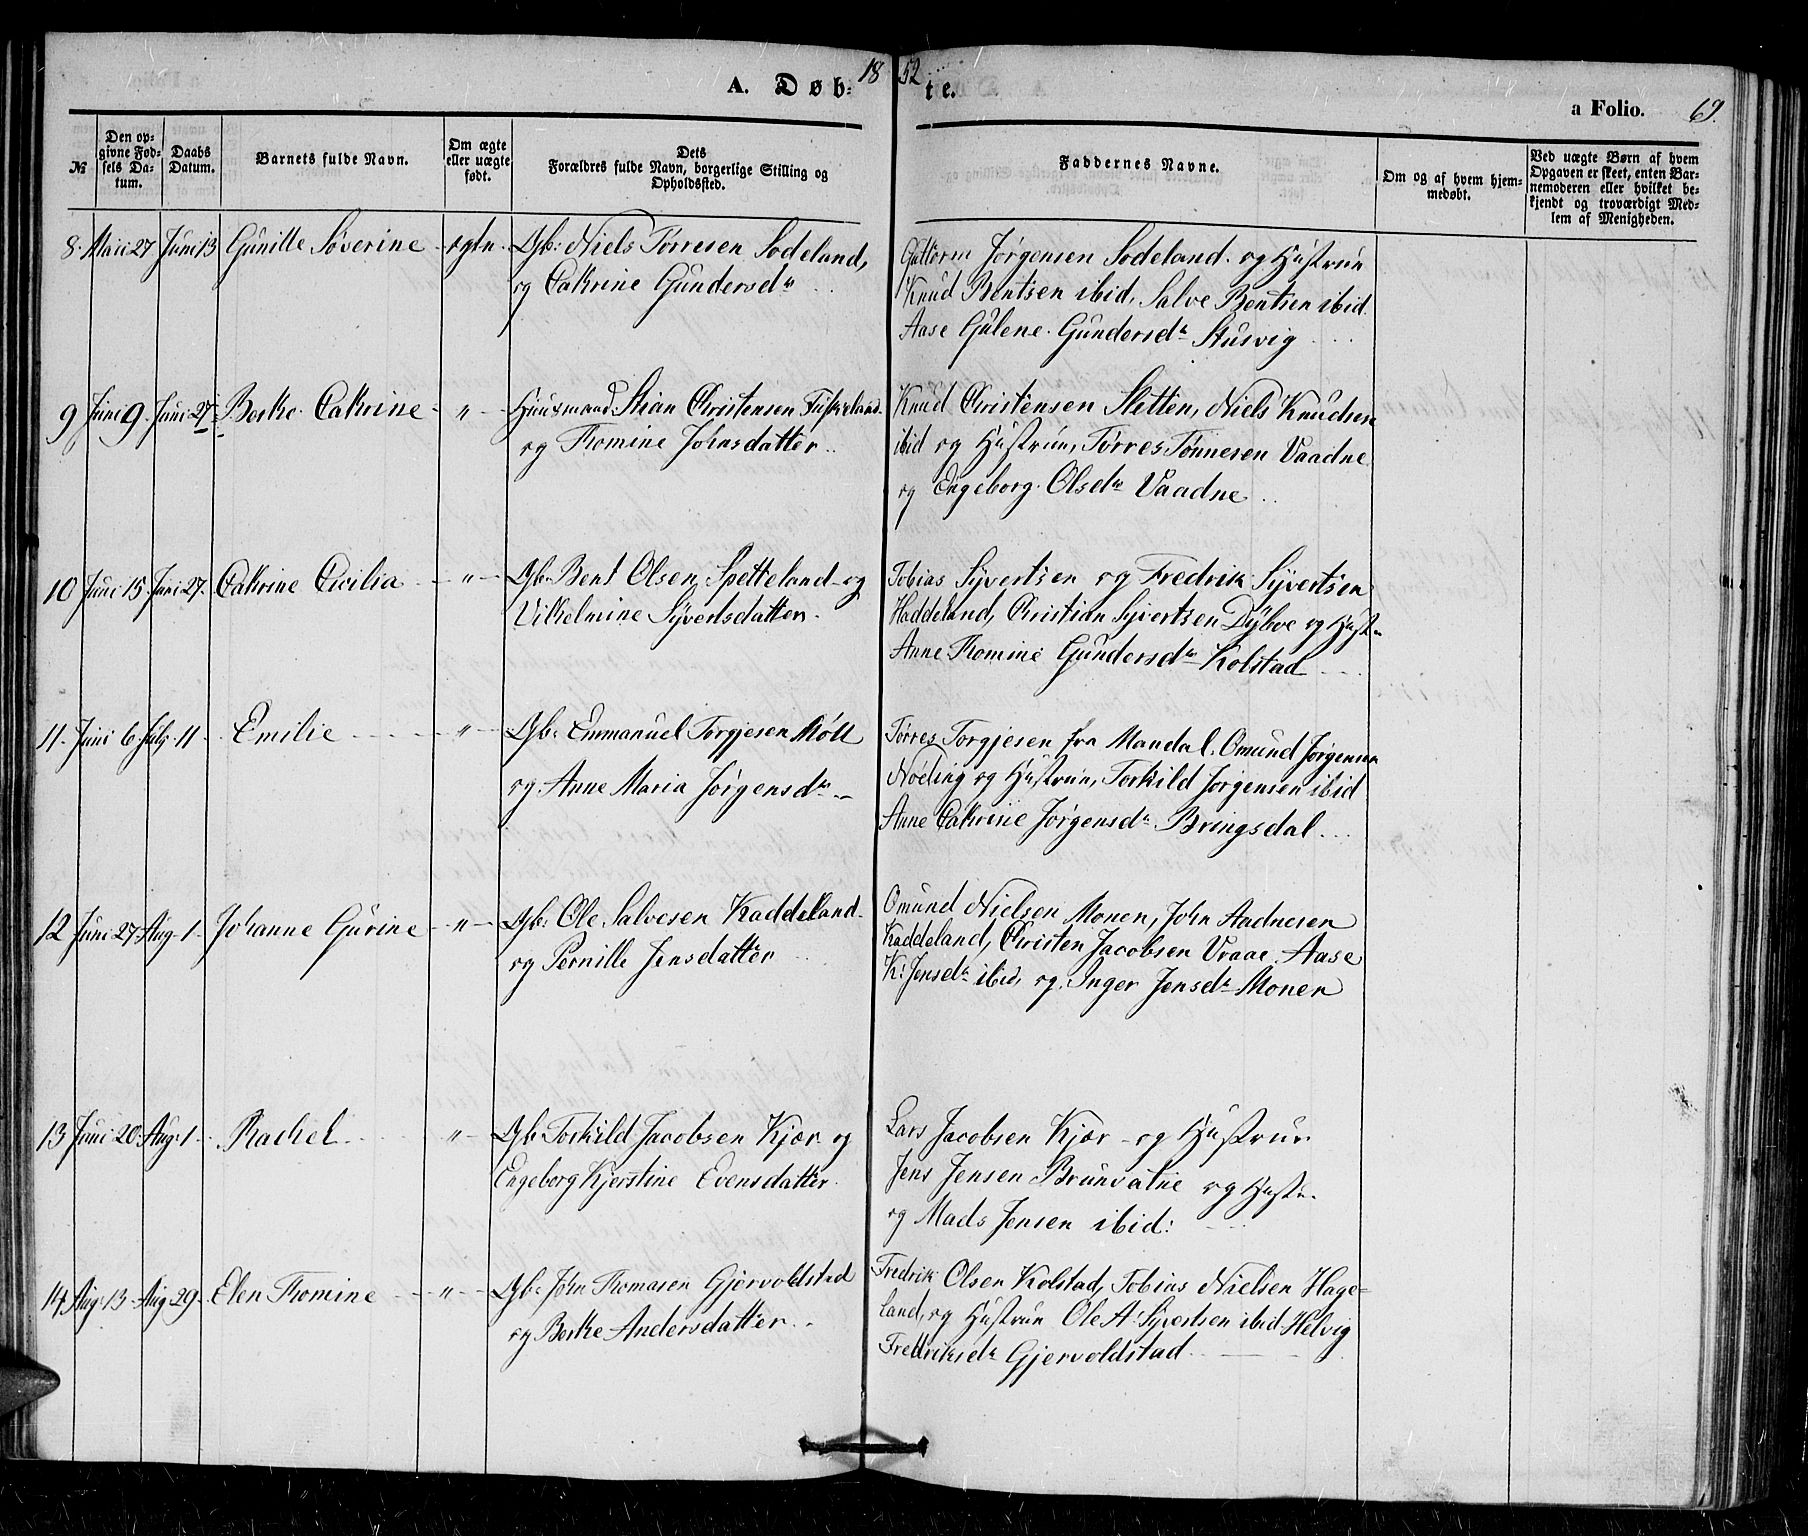 1852
A. Døb-te.
a Folio. 69.
№
Den opgivne Fødsels Datum.
Daabs Datum.
Barnets fulde Navn.
Om ægte eller uægte født.
Dets Forældres fulde Navn, borgerlige Stilling og Opholdssted.
Faddernes Navne.
Om og af hvem hjemmedøbt.
Ved uægte Børn af hvem Opgaven er skeet, enten Barnemoderen eller hvilket bekjendt og troværdigt Medlem af Menigheden.
8. Maii 27 Juni 13 Gunille Søverine ægte. Gb: Niels Tørresen Sodeland,
og Cathrine Gundersdr
Guttorm Jørgensen Sodeland. og Hustrue
Knud Bentsen ibid, Salve Bentsen ibid.
Aase Gulene Gundersdr Stusvig
9 Juni 9. Juni 27 Berthe Cathrine " Huusmand Stian Christensen Fiskeland
og Thomine Johnsdatter
Knud Christensen Sletten, Niels Knudsen
ibid og Hustrue, Tørres Tønnesen Vaadne
og Engeborg Olsdr Vaadne
10 Juni 15. Juni 27. Cathrine Cicilia " Gb: Bent Olsen Spetteland og
Vilhelmine Syvertsdatter.
Tobias Syvertsen og Fredrik Syvertsen
Haddeland, Christian Syvertsen Dybve og Hust.
Anne Thomine Gundersdr Kolstad
11. Juni 6. July 11 Emilie " Gb: Emmanuel Torgjesen Møll
og Anne Maria Jørgensdr
Tørres Torgjesen fra Mandal. Omund Jørgensen
Nøding og Hustrue, Torkild Jørgensen ibid
Anne Cathrine Jørgensdr Bringsdal
12 Juni 27. Aug. 1. Johanne Gurine " Gb: Ole Salvesen Haddeland
og Pernille Jensdatter
Omund Nielsen Monen, John Aadnesen
Haddeland, Christen Jacobsen Vraae. Aase
K: Jensdr ibid, og Inger Jensdr Monen
13 Juni 20. Aug. 1. Rachel " Gb: Torkild Jacobsen Kjær og
Engeborg Kjerstine Evensdatter
Lars Jacobsen Kjær og Hustrue
Jens Jensen Brunvatne og Hust.
og Mads Jensen ibid:
14. Aug. 13. Aug 29. Elen Thomine " Gb: John Thomasen Gjervoldstad
og Berthe Andersdatter
Fredrik Olsen Kolstad, Tobias Nielsen Hage-
land, og Hustrue Ole A. Syvertsen ibid Helvig
Fredriksdr Gjervoldstad